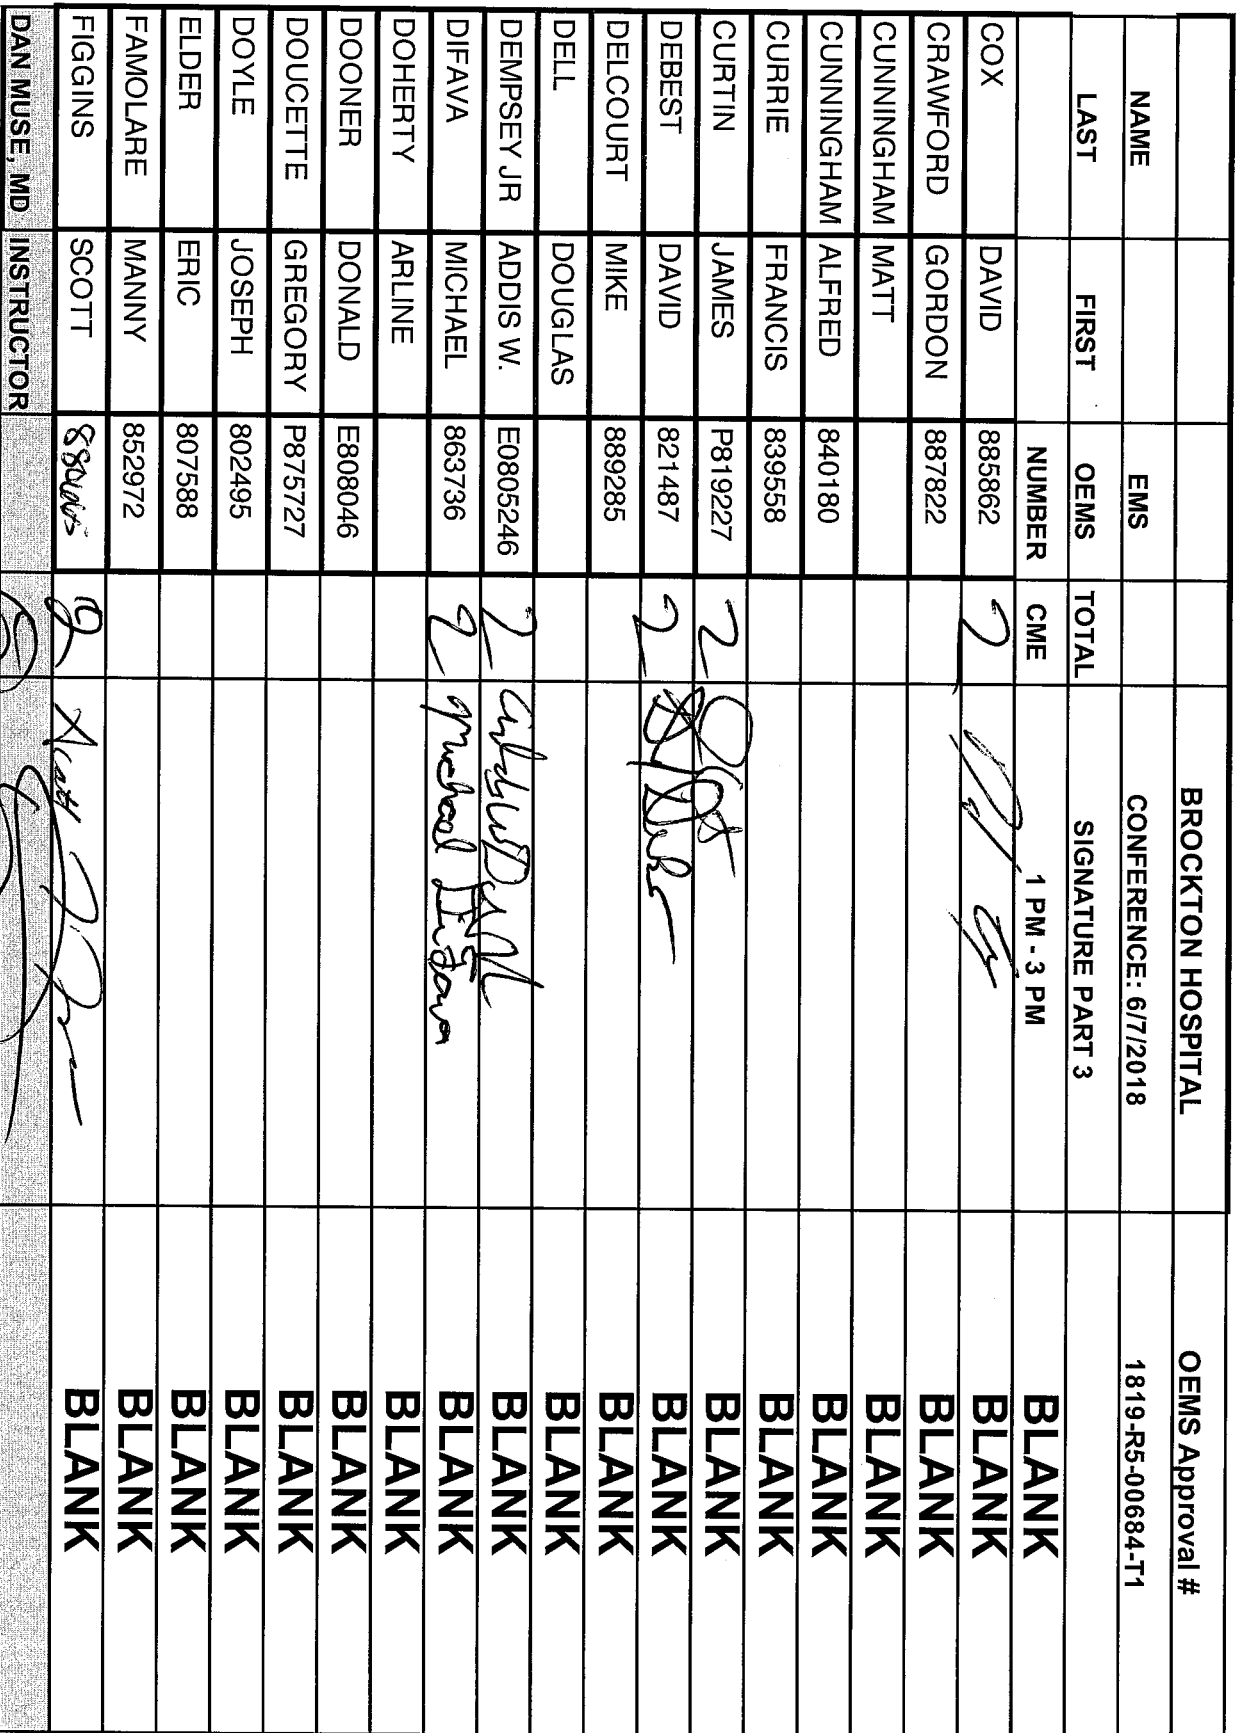 BROCKTON HOSPITAL OEMS Approval #
NAME EMS CONFERENCE: 6/7/2018 1819-R5-00684-T1
LAST FIRST OEMS TOTAL SIGNATURE PART 3
NUMBER CME 1 PM - 3 PM BLANK
COX DAVID 885862 2 BLANK
CRAWFORD GORDON 887822 BLANK
CUNNINGHAM MATT BLANK
CUNNINGHAM ALFRED 840180 BLANK
CURRIE FRANCIS 839558 BLANK
CURTIN JAMES P819227 2 BLANK
DEBEST DAVID 821487 2 BLANK
DELCOURT MIKE 889285 BLANK
DELL DOUGLAS BLANK
DEMPSEY JR ADDIS W. E0805246 2 BLANK
DIFAVA MICHAEL 863736 2 Michael DiFava BLANK
DOHERTY ARLINE BLANK
DOONER DONALD E808046 BLANK
DOUCETTE GREGORY P875727 BLANK
DOYLE JOSEPH 802495 BLANK
ELDER ERIC 807588 BLANK
FAMOLARE MANNY 852972 BLANK
FIGGINS SCOTT 2 Scott BLANK
DAN MUSE, MD INSTRUCTOR